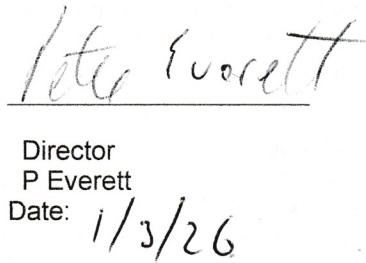 Peter Everett
Director
P Everett
Date: 1/3/26